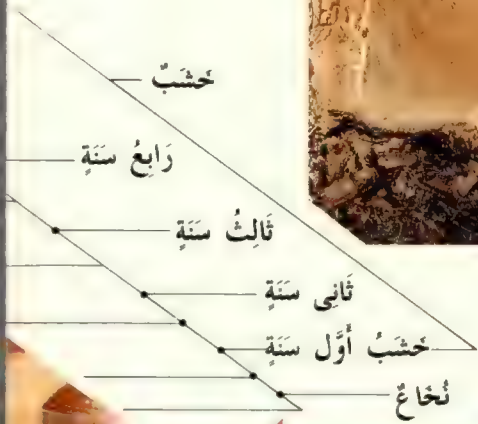 خَشَبٌ
رَابِعُ سَنَةٍ
ثَالِثُ سَنَةٍ
ثَانِى سَنَةٍ
خَشَبُ أَوَّل سَنَةٍ
نُخَاعٌ